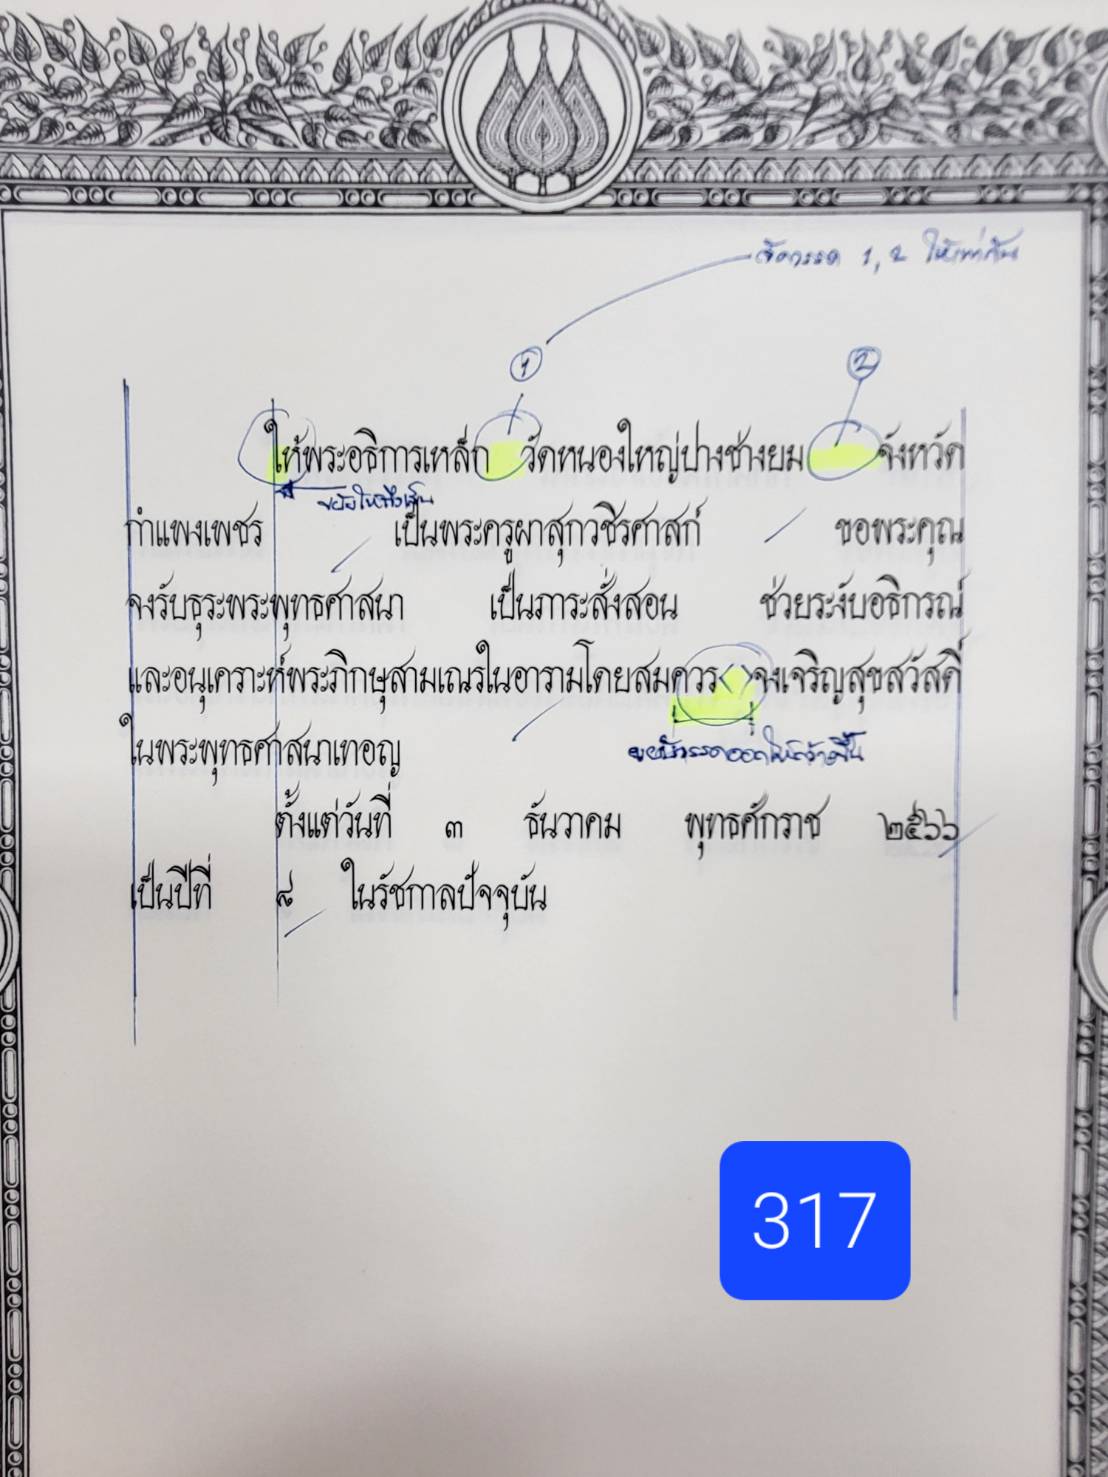 จัดวรรค 1, 2 ให้เท่ากัน
1 2
ให้พระอธิการเหล็ก วัดหนองใหญ่ปางช้างยม จังหวัด
ขยับให้ถึงเส้น
กำแพงเพชร เป็นพระครูผาสุกวชิรศาสก์ ขอพระคุณ
จงรับธุระพระพุทธศาสนา เป็นภาระสั่งสอน ช่วยระงับอธิกรณ์
และอนุเคราะห์พระภิกษุสามเณรในอารามโดยสมควร< >จงเจริญสุขสวัสดิ์
ในพระพุทธศาสนาเทอญ
ขยับวรรคออกให้กว้างขึ้น
ตั้งแต่วันที่ ๓ ธันวาคม พุทธศักราช ๒๕๖๖
เป็นปีที่ ๘ ในรัชกาลปัจจุบัน
317